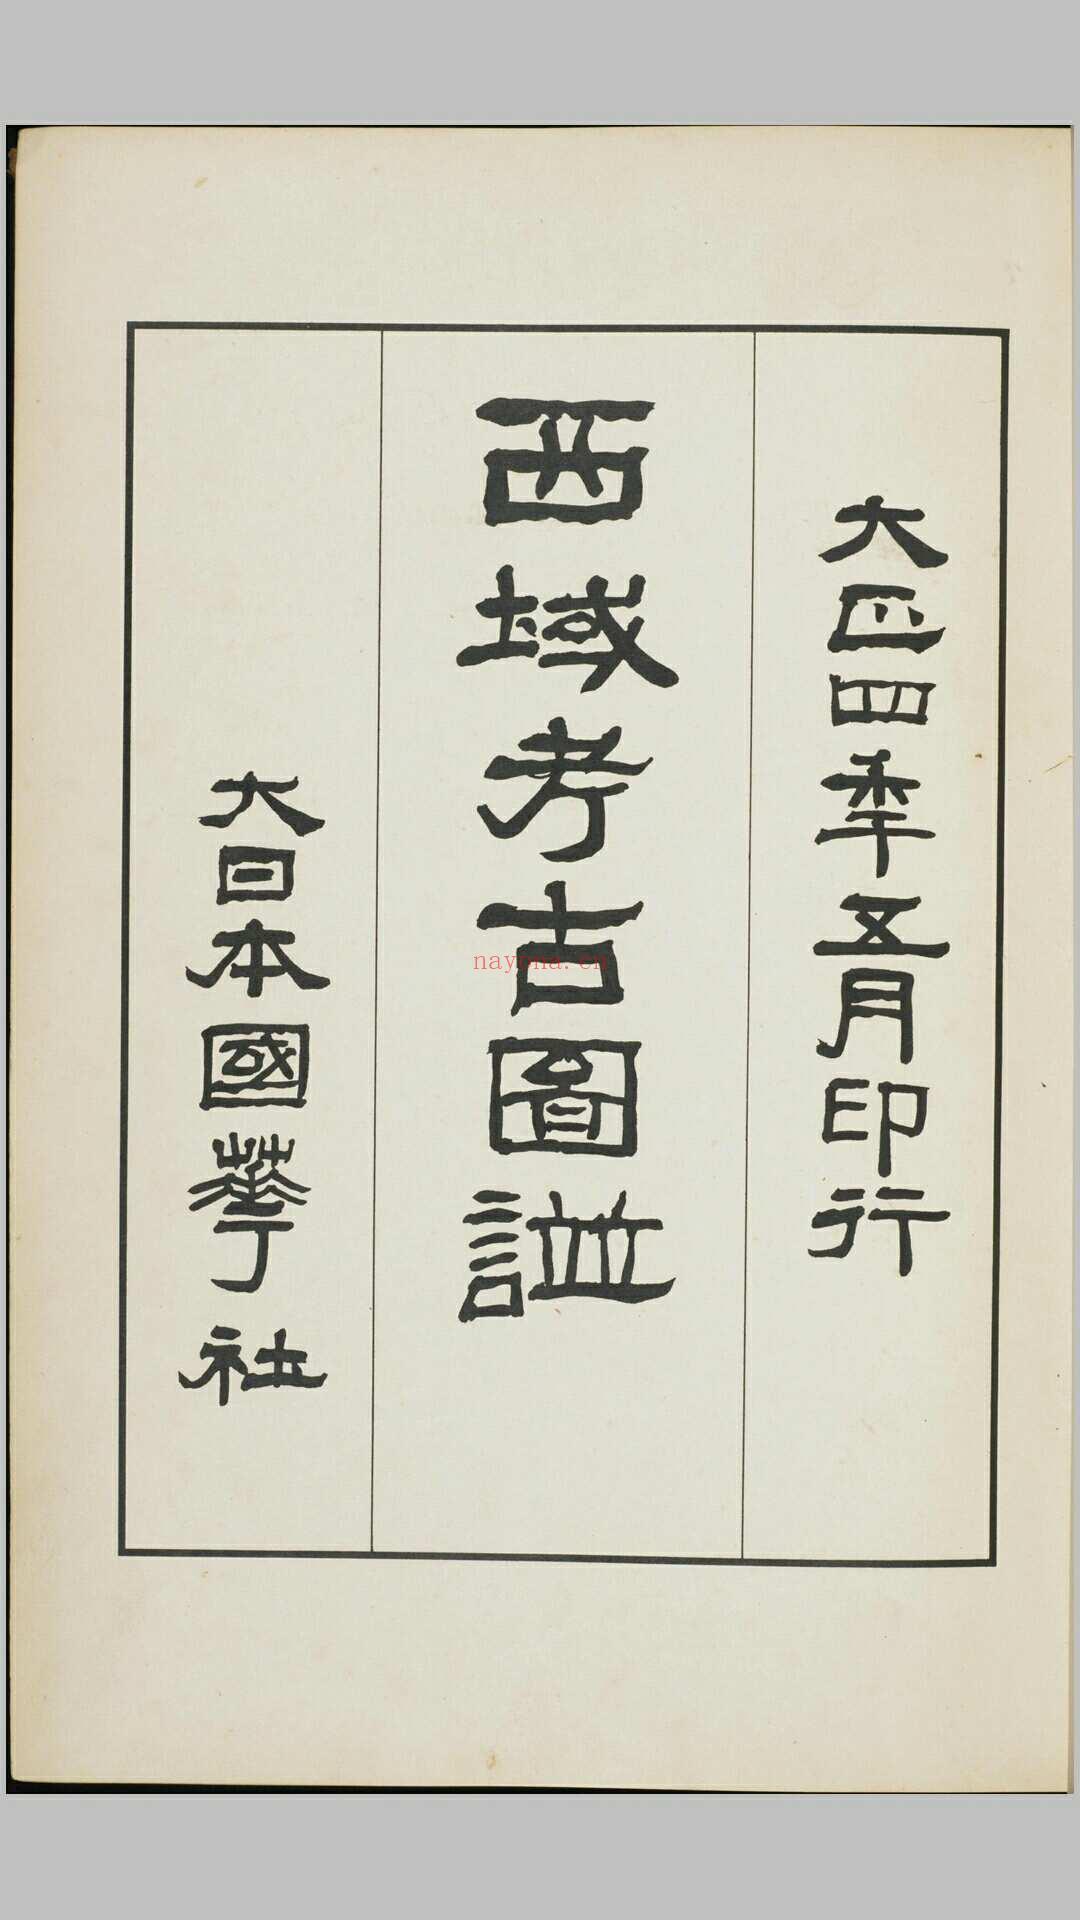 大正四年五月印行
西域考古圖譜
大日本國華社
nayona.cn